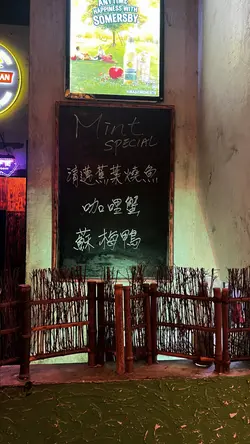 ANYTIME
HAPPINESS WITH
SOMERSBY
Mint
SPECIAL
清邁蕉葉燒魚
咖喱蟹
蘇梅鴨